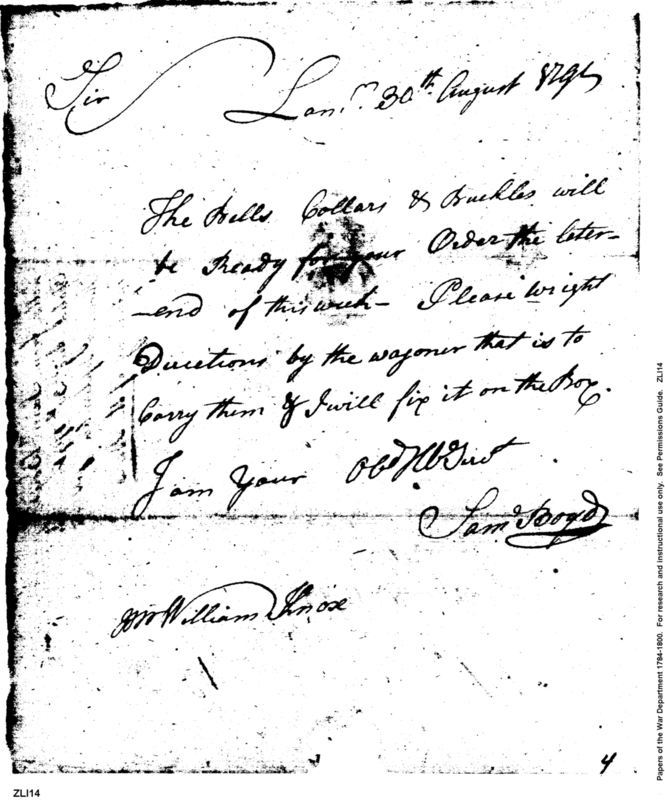 Sir
Lanr. 30th August 1791
The Bells Collars & Buckles will
be Ready for your Order the leter-
-end of this week - Please wright
Directions by the wagoner that is to
Carry them & I will fix it on the Box.
I am your Obd Hb Servt
Saml Boyd
Mr William Knox
4
ZLI14
Papers of the War Department 1784-1800. For research and instructional use only. See Permissions Guide. ZLI14